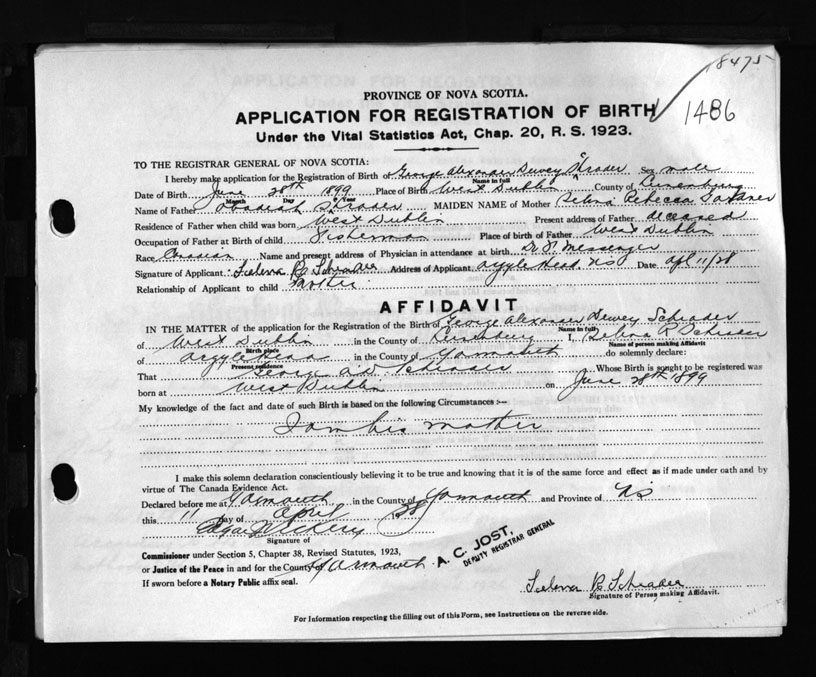 18475
1486
PROVINCE OF NOVA SCOTIA.
APPLICATION FOR REGISTRATION OF BIRTH
Under the Vital Statistics Act, Chap. 20, R. S. 1923.
TO THE REGISTRAR GENERAL OF NOVA SCOTIA:
I hereby make application for the Registration of Birth of George Alexander Dewey Schrader Sex male
Name in full
Date of Birth June 28th 1899 Place of Birth West Dublin County of Lunenburg
Month Day Year
Name of Father Obadiah Schrader MAIDEN NAME of Mother Selina Rebecca
Residence of Father when child was born West Dublin Present address of Father deceased
Occupation of Father at Birth of child Fisherman Place of birth of Father West Dublin
Race Canadian Name and present address of Physician in attendance at birth Dr. Messenger
Signature of Applicant Schrader Address of Applicant Argyle Head, NS Date Apl 11/28
Relationship of Applicant to child Mother
AFFIDAVIT
IN THE MATTER of the application for the Registration of the Birth of George Alexander Dewey Schrader
Name in full
of West Dublin in the County of Lunenburg I, Selina R Schrader
Birth place Name of person making Affidavit
of Argyle Head in the County of Yarmouth do solemnly declare:
Present residence
That George A D Schrader Whose Birth is sought to be registered was
born at West Dublin on June 28th 1899
My knowledge of the fact and date of such Birth is based on the following Circumstances :—
I am his mother
I make this solemn declaration conscientiously believing it to be true and knowing that it is of the same force and effect as if made under oath and by
virtue of The Canada Evidence Act.
Declared before me at Yarmouth in the County of Yarmouth and Province of NS
this 11 day of April 28
Edgar
Signature of
A. C. JOST,
DEPUTY REGISTRAR GENERAL
Commissioner under Section 5, Chapter 38, Revised Statutes, 1923,
or Justice of the Peace in and for the County of Yarmouth
If sworn before a Notary Public affix seal.
Schrader
Signature of Person making Affidavit.
For Information respecting the filling out of this Form, see Instructions on the reverse side.